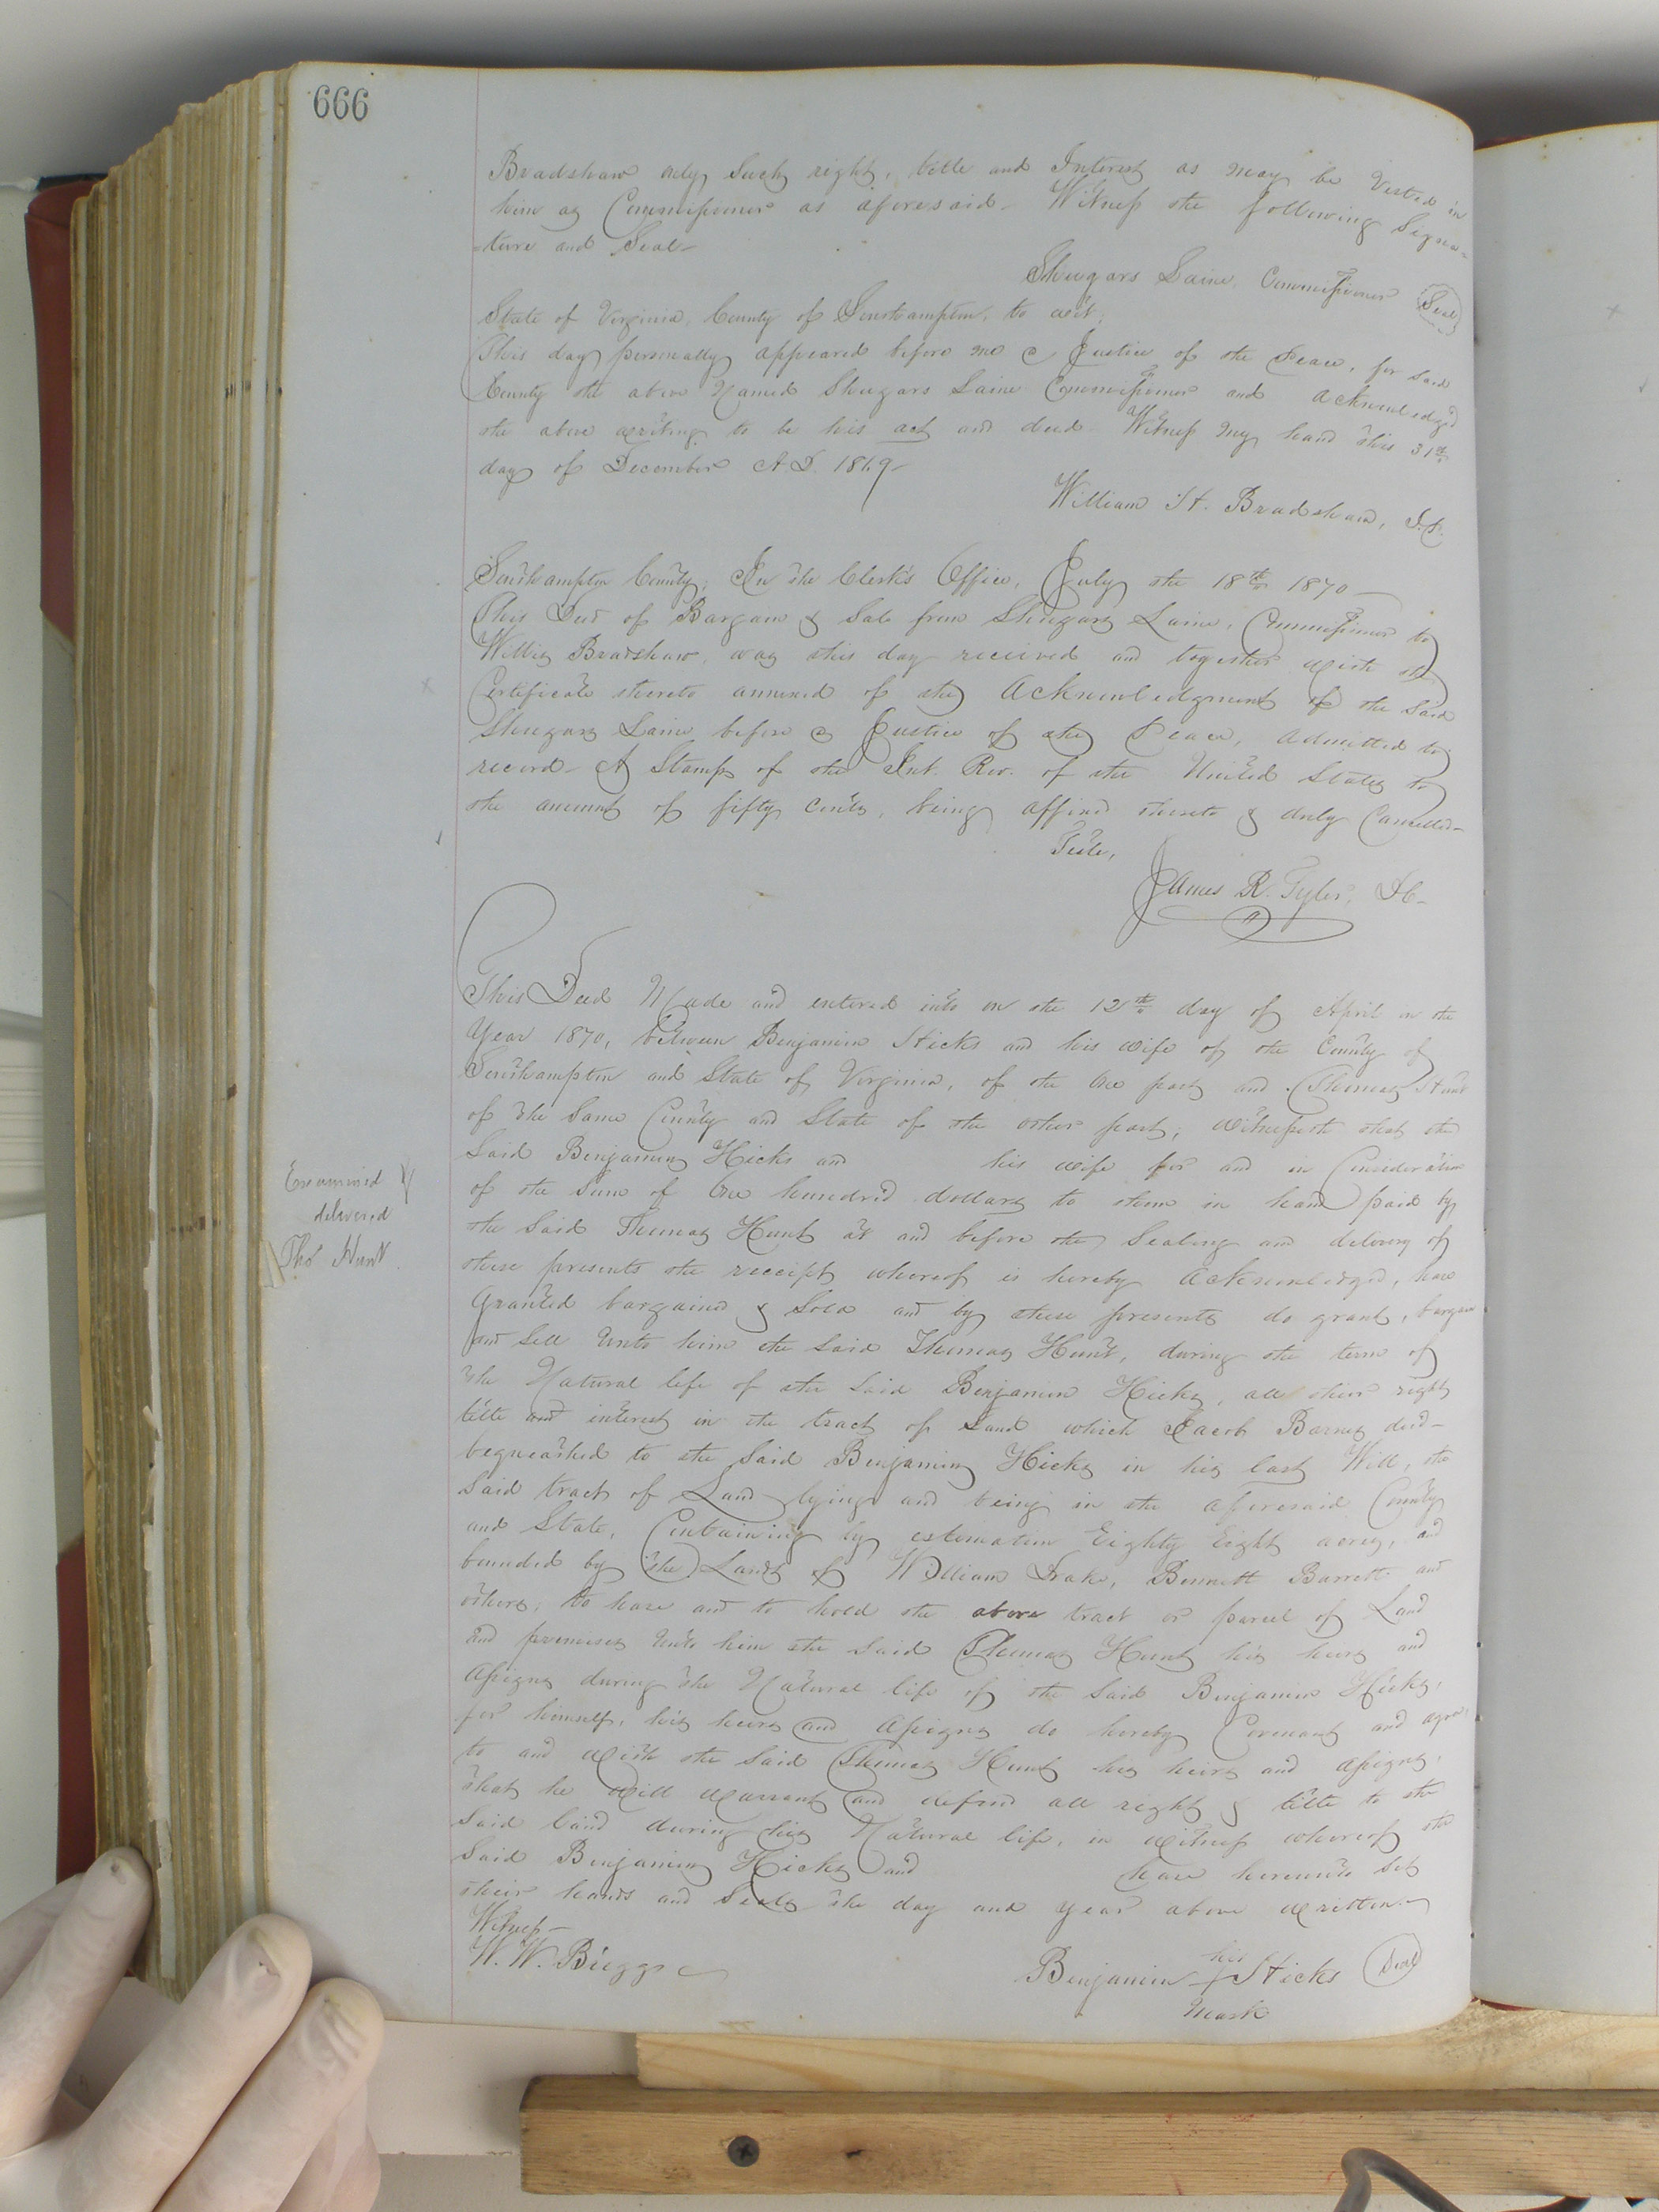 666
Bradshaw only such right, title and Interest as may be Vested in
him as Commissioner as aforesaid – Witness the following Signa-
-ture and Seal –
Shugars Laine, Commissioner (Seal)
State of Virginia, County of Southampton, to wit;
This day personally appeared before me a Justice of the Peace, for said
County the above Named Shugars Laine Commissioner and acknowledged
the above writing to be his act and deed. Witness my hand this 31st
day of December A.D. 1869 –
William H. Bradshaw, J.P.
Southampton County; In the Clerk's Office, July the 18th 1870 –
This Deed of Bargain & Sale from Shugars Laine, Commissioner to
Willis Bradshaw, was this day received and together with the
Certificate thereto annexed of the Acknowledgment of the said
Shugars Laine before a Justice of the Peace, admitted to
record – A Stamp of the Int. Rev. of the United States to
the amount of fifty cents, being affixed thereto & duly Cancelled –
Teste,
James R. Tyler, D.C. –
This Deed Made and entered into on the 12th day of April in the
Year 1870, between Benjamin Hicks and his wife of the County of
Southampton and State of Virginia, of the One part and Thomas Hunt
of the Same County and State of the other part; witnesseth that the
Said Benjamin Hicks and his wife for and in Consideration
of the Sum of One hundred dollars to them in hand paid by
the Said Thomas Hunt at and before the Sealing and delivery of
these presents the receipt whereof is hereby Acknowledged, have
Granted bargained & Sold and by these presents do grant, bargain
and Sell Unto him the Said Thomas Hunt, during the term of
the Natural life of the Said Benjamin Hicks, all their right
title and interest in the tract of Land which Jacob Barnes decd –
bequeathed to the Said Benjamin Hicks in his last Will, the
Said tract of Land lying and being in the aforesaid County
and State, Containing by estimation Eighty Eight acres, and
bounded by the Lands of William Drake, Bennett Barrett and
others; to have and to hold the above tract or parcel of Land
and premises Unto him the Said Thomas Hunt his heirs and
Assigns during the Natural life of the Said Benjamin Hicks,
for himself, his heirs and Assigns do hereby Covenant and agree,
to and with the Said Thomas Hunt his heirs and assigns,
that he will Warrant and defend all right & title to the
Said land during his Natural life, in witness whereof the
Said Benjamin Hicks and have hereunto Set
their hands and Seals the day and year above written –
Witness –
W. W. Briggs
his
Benjamin + Hicks (Seal)
Mark
Examined &
delivered
Tho' Hunt